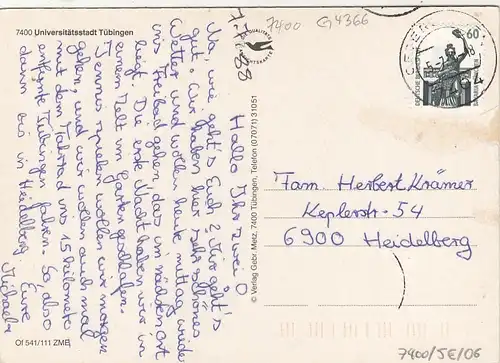 7400 Universitätsstadt Tübingen
7400 G4366
7.7.88
Hallo Ihr zwei!
Na, wie geht's Euch? Mir geht's
gut. Wir haben hier sehr schönes
Wetter und wollen heute mittag wieder
ins Freibad gehen, das im nächsten Ort
liegt. Die erste Nacht haben wir in
einem Zelt im Garten geschlafen.
Tennis spielen wollen wir morgen
gehen, und wir wollen auch mal
mit dem Fahrrad ins 15 Kilometer
entfernte Tübingen fahren. So, also
dann bis in Heidelberg
Eure
Michaela
© Verlag Gebr. Metz, 7400 Tübingen, Telefon (07071) 31051
60
Fam. Herbert Krämer
Keplerstr. 54
6900 Heidelberg
Of 541/111 ZME
7400/SE/06